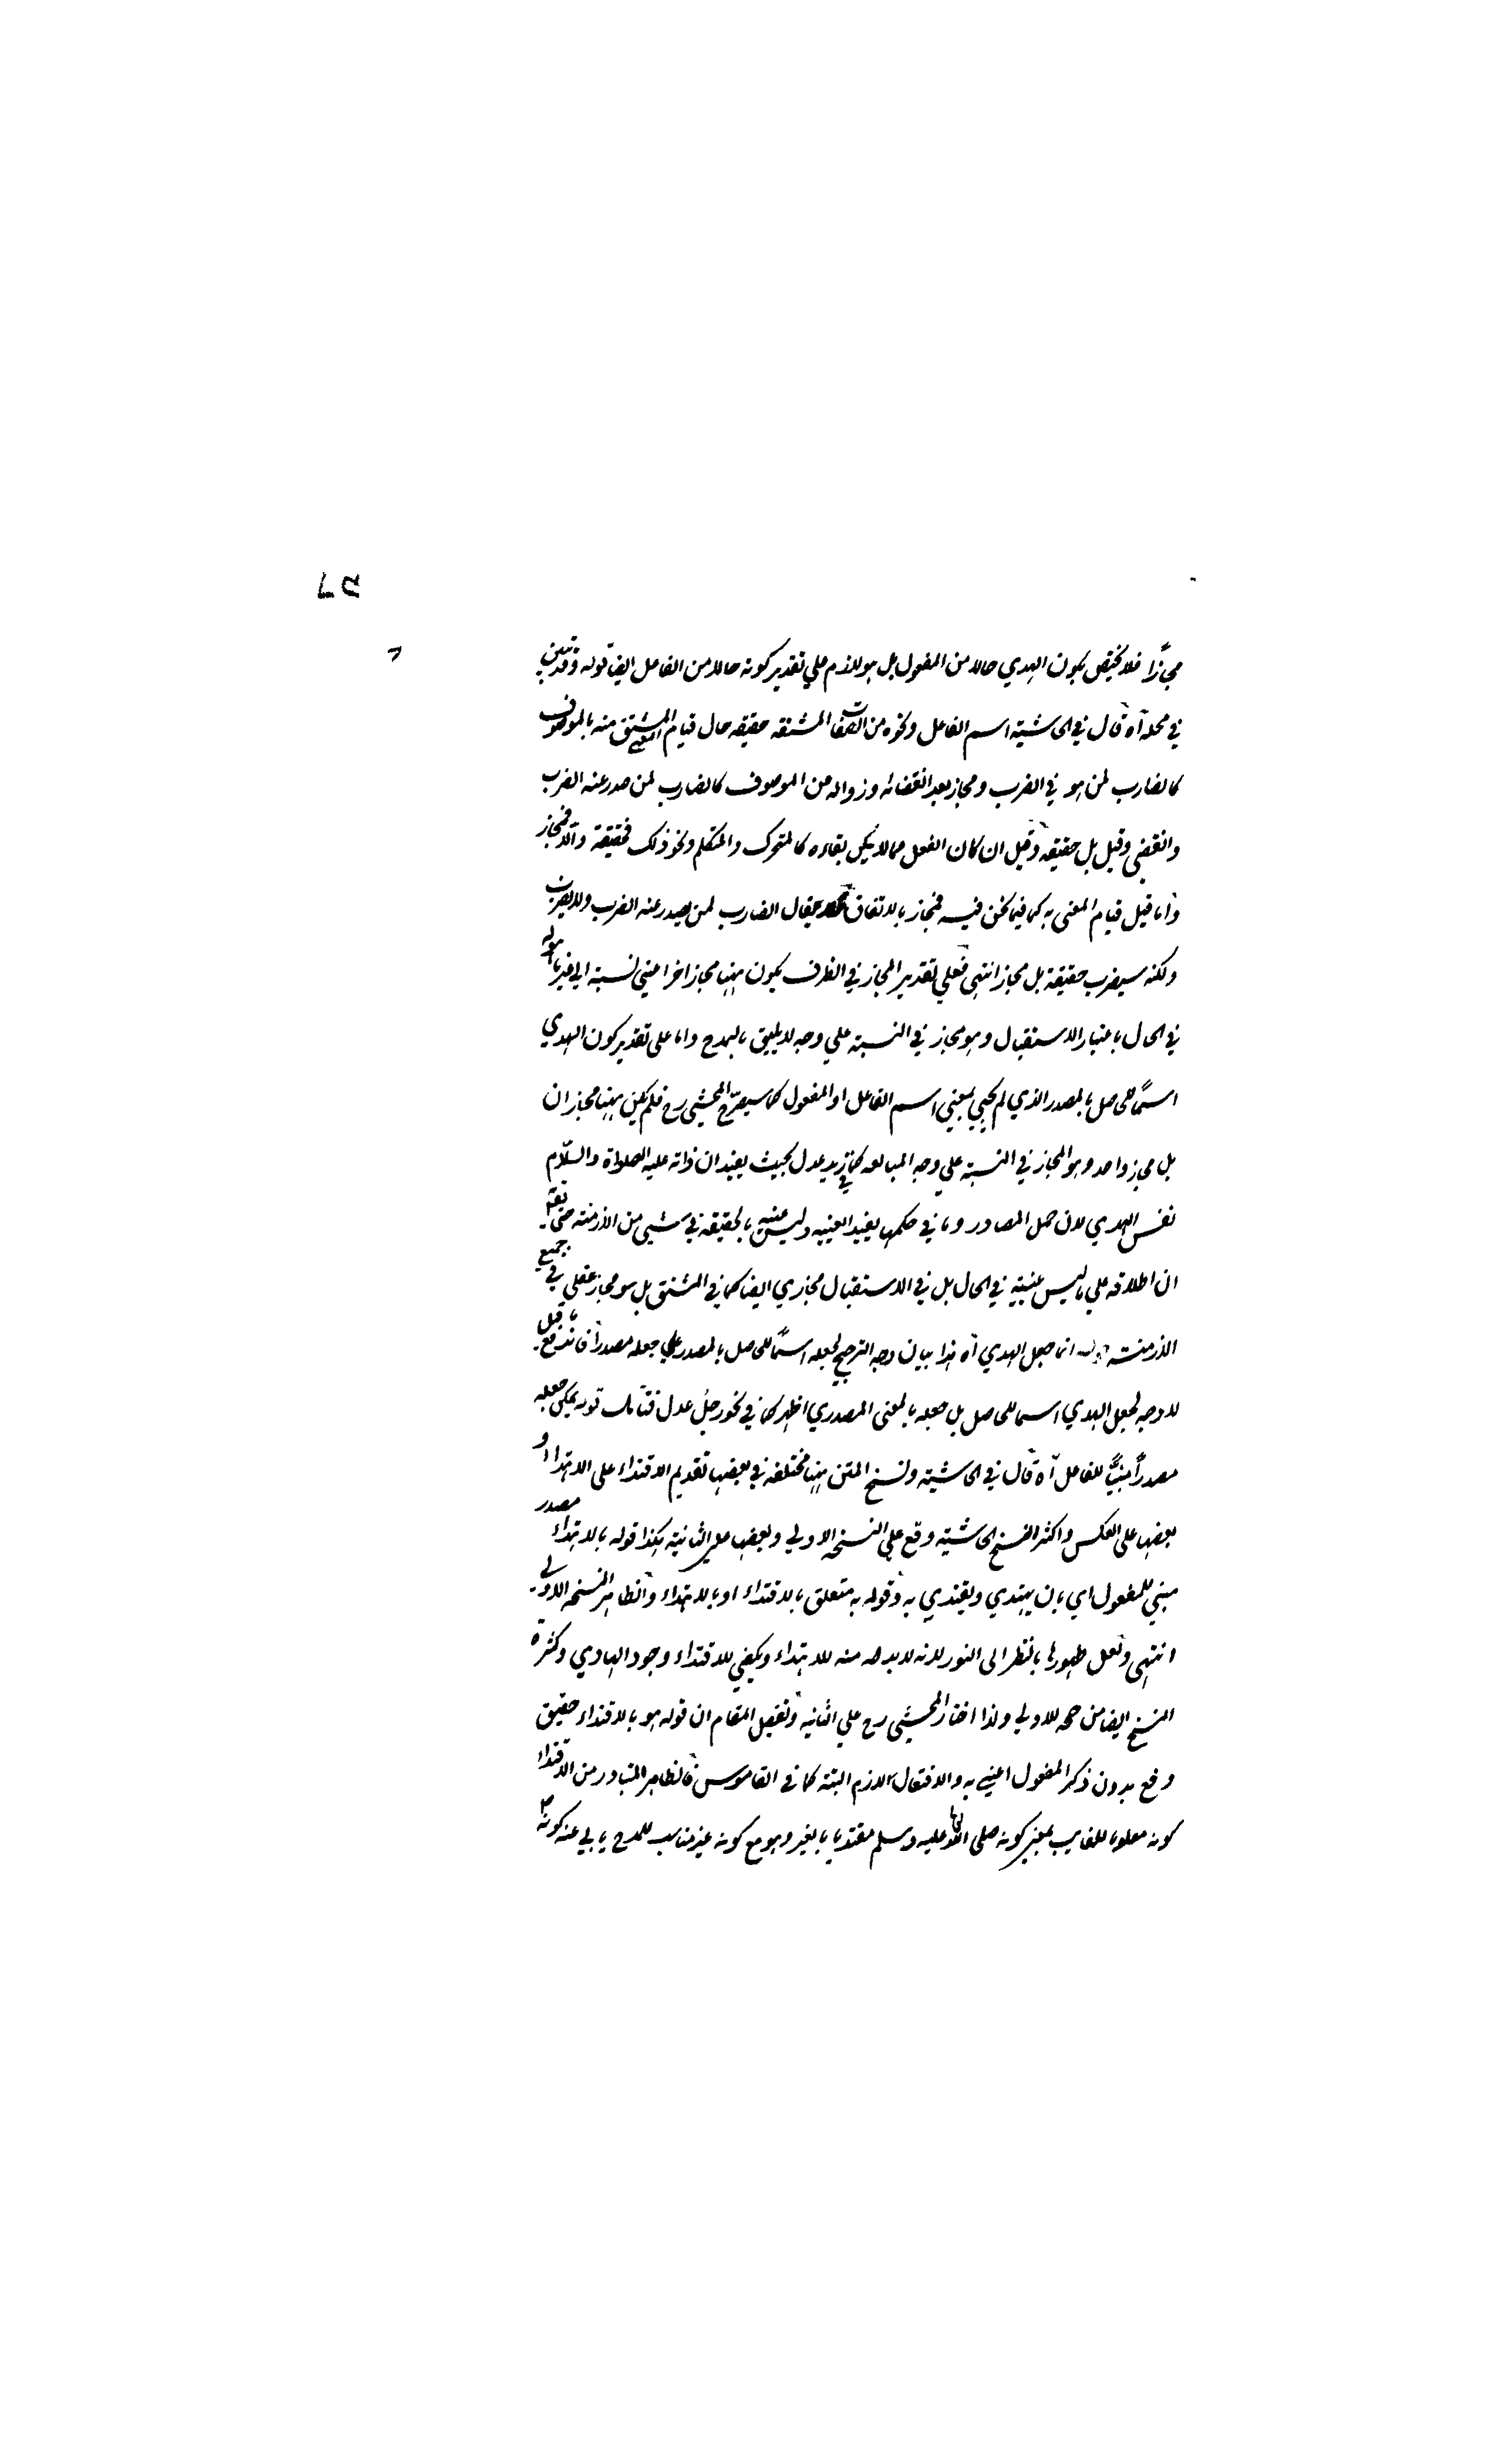 مجازًا فلا يختص بكون الهدي حالا من المفعول بل هو لازم علي تقدير كونه حالا من الفاعل ايضا قوله وقد تبين
في محله آه قال في الحاشية اسم الفاعل ونحوه من الصفات المشتقه حقيقه حال قيام المعني المشتق منه بالموصوف
كالضارب لمن هو في الضرب ومجاز بعد انقضائه وزواله من الموصوف كالضارب لمن صدر عنه الضرب
وانقضي وقيل بل حقيقه وقيل ان كان الفعل مما لا يمكن بقاءه كالمتحرك والمتكلم ونحو ذلك فحقيقة والا فمجاز
واما قبل قيام المعني به كما فيما نحن فيه فمجاز بالاتفاق يقال الضارب لمن يصدر عنه الضرب ولا يضرب
ولكنه سيضرب حقيقة بل مجاز انتهى فعلي تقدير المجاز في الظرف يكون ههنا مجاز اخر اعني نسبة الي غير ما هو له
في الحال باعتبار الاستقبال وهو مجاز في النسبة علي وجه لا يليق بالمدح واما على تقدير كون الهدي
اسمًا للحاصل بالمصدر الذي لم يجيي بمعني اسم الفاعل او المفعول كما سيصرّح المحشي رح فلم يكن ههنا مجازان
بل مجاز واحد وهو المجاز في النسبة علي وجه المبالغه كما في زيد عدل بحيث يفيد ان ذاته عليه الصلواة والسلام
نفس الهدي لان حمل المصادر وما في حكمها يفيد العينيه وليس عينيه بالحقيقه في شيي من الازمنته حتى يقـ
ان اطلاقه علي ما ليس عينيه في الحال بل في الاستقبال مجازي ايضا كما في المشتق بل هو مجاز عقلي في جميع
الازمنته قوله انما جعل الهدي آه هذا بيان وجه الترجيح لجعله اسمًا للحاصل بالمصدر علي جعله مصدرا فاندفع ما قيل
لا وجه لجعل الهدي اسما للحاصل بل جعله بالمعنى المصدري اظهر كما في نحو رجل عدل فتأمل قوله يمكن جعله
مصدرًا مبنيًّا للفاعل آه قال في الحاشية ونسخ المتن ههنا مختلفه في بعضها تقديم الاقتداء على الاهتداء و
بعضها على العكس واكثر النسخ الحاشيته وقع علي النسخه الاولي وبعضها علي الثانيته هكذا قوله بالاهتداء مصدر
مبني للمفعول اي بان يهتدي ويقتدي به وقوله به متعلق بالاقتداء او بالاهتداء والظاهر النسخه الاولي
انتهي ولعل ظهورها بالنظر الى النور لانه لا بد له منه للاهتداء ويكفي للاقتداء وجود الهادي وكثرة
النسخ ايضا مرجحه للاولي ولذا اختار المحشي رح علي الثانيه وتفصيل المقام ان قوله هو بالاقتداء حقيق
وقع بدون ذكر المفعول اعني به والافتعال لازم البتة كما في القاموس فالظاهر المتبادر من الاقتداء
كونه معلوما للغايب بمعني كونه صلى الله تعالى عليه وسلم مقتديا بالغير وهو مع كونه غير مناسب للمدح يابي عنه كونه